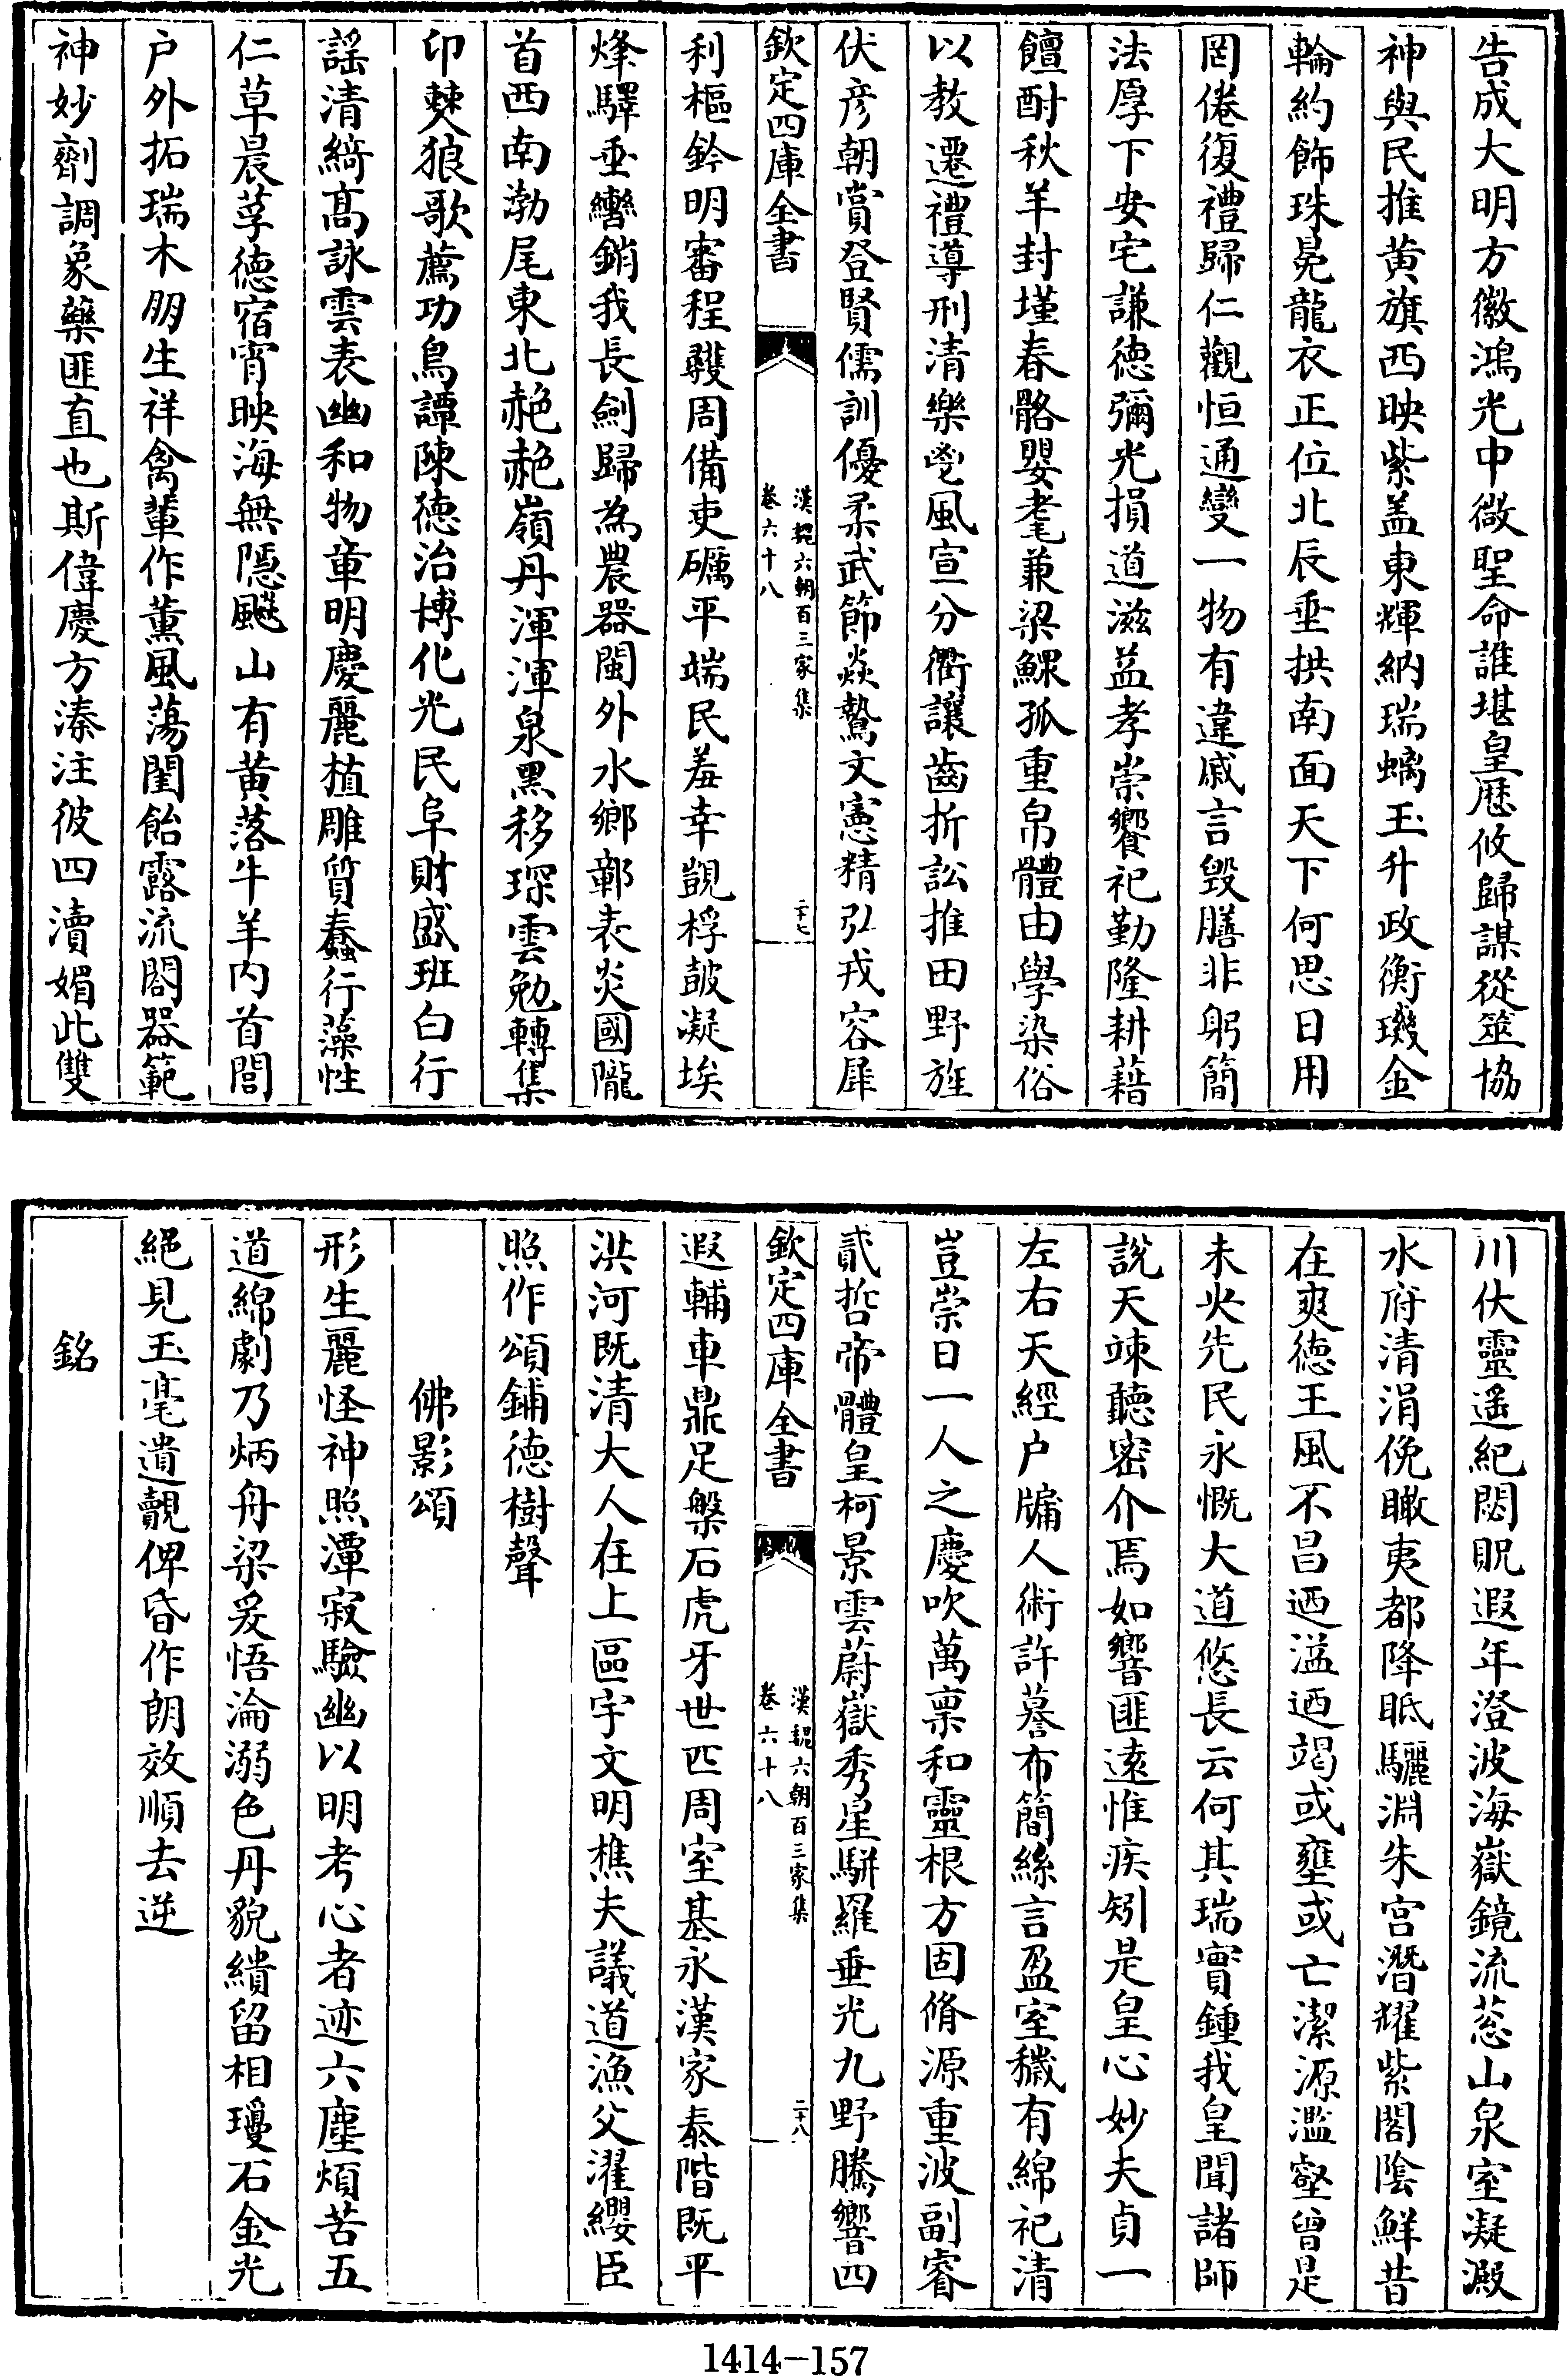 告成大明方徽鴻光中微聖命誰堪皇歴攸歸謀從筮協
神與民推黄旗西映紫盖東輝納瑞螭玉升政衡璣金
輪約飾珠冕龍衣正位北辰垂拱南面天下何思日用
罔倦復禮歸仁觀恒通變一物有違戚言毁膳非躬簡
法厚下安宅謙徳彌光損道滋益孝崇饗祀勤隆耕藉
饘酎秋羊封墐春骼嬰耄兼梁鰥孤重帛體由學染俗
以教遷禮導刑清樂㡭風宣分衢讓齒折訟推田野旌
伏彦朝賞登賢儒訓優柔武節焱鷙文憲精弘戎容犀
欽定四庫全書
漢魏六朝百三家集
卷六十八
二十七
利樞鈐明審程䕶周備吏礪平端民羞幸覬桴皷凝埃
烽驛垂轡銷我長劍歸為農器閩外水鄉鄣表炎國隴
首西南渤尾東北赩赩嶺丹渾渾泉黑移琛雲勉轉集
卬僰狼歌薦功鳥譯陳徳治博化光民阜財盛班白行
謡清綺髙詠雲表幽和物章明慶麗植雕質蠢行藻性
仁草晨莩徳宿宵映海無隱飈山有黄落牛羊内首閭
户外拓瑞木朋生祥禽輩作薰風蕩閨飴露流閣器範
神妙劑調象藥匪直也斯偉慶方溱注彼四瀆媚此雙
川伏靈遥紀閟貺遐年澄波海嶽鏡流葱山泉室凝澱
水府清涓俛瞰夷都降眡驪淵朱宫潛耀紫閣隂鮮昔
在爽徳王風不昌迺溢迺竭或壅或亡潔源濫壑曾是
未央先民永慨大道悠長云何其瑞實鍾我皇聞諸師
說天竦聽密介焉如響匪遠惟疾矧是皇心妙夫貞一
左右天經户牖人術許謩布簡絲言盈室穢有綿祀清
豈崇日一人之慶吹萬禀和靈根方固脩源重波副睿
貳哲帝體皇柯景雲蔚嶽秀星駢羅垂光九野騰響四
欽定四庫全書
漢魏六朝百三家集
卷六十八
二十八
遐輔車鼎足槃石虎牙世匹周室基永漢家泰階既平
洪河既清大人在上區宇文明樵夫議道漁父濯纓臣
照作頌鋪德樹聲
佛影頌
形生麗怪神照潭寂驗幽以明考心者迹六塵煩苦五
道綿劇乃炳舟梁爰悟淪溺色丹貌繢留相瓊石金光
絕見玉毫遺覿俾昏作朗效順去逆
銘
1414—157